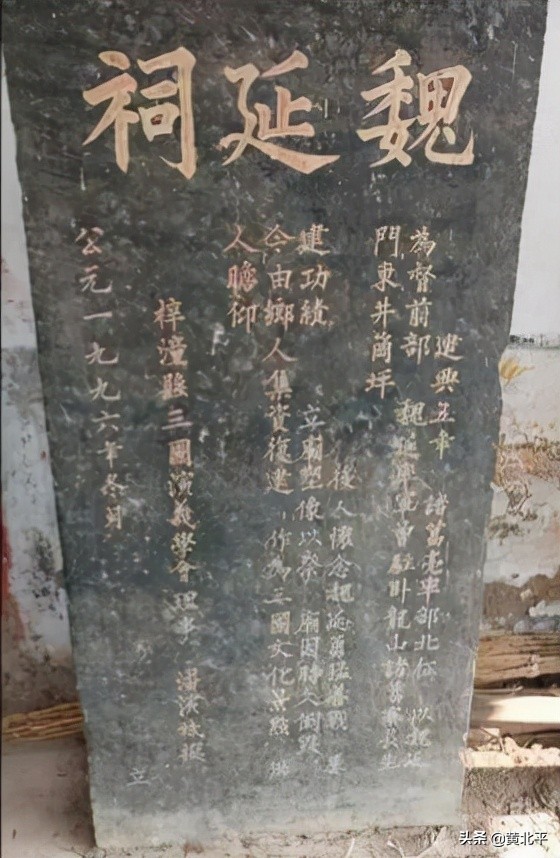 魏延祠
建興五年 諸葛亮率部北伐 以魏延
為督前部 魏延率軍曾駐卧龍山諸葛寨長生
門東井崗坪
後人懷念魏延勇猛善戰 屢
建功績 立廟塑像以祭 廟因時久
今由鄉人集資復建，作為三國文化景點 供
人瞻仰
梓潼縣三國演義學會理事
公元一九九六年冬月 立
头条 @黄北平